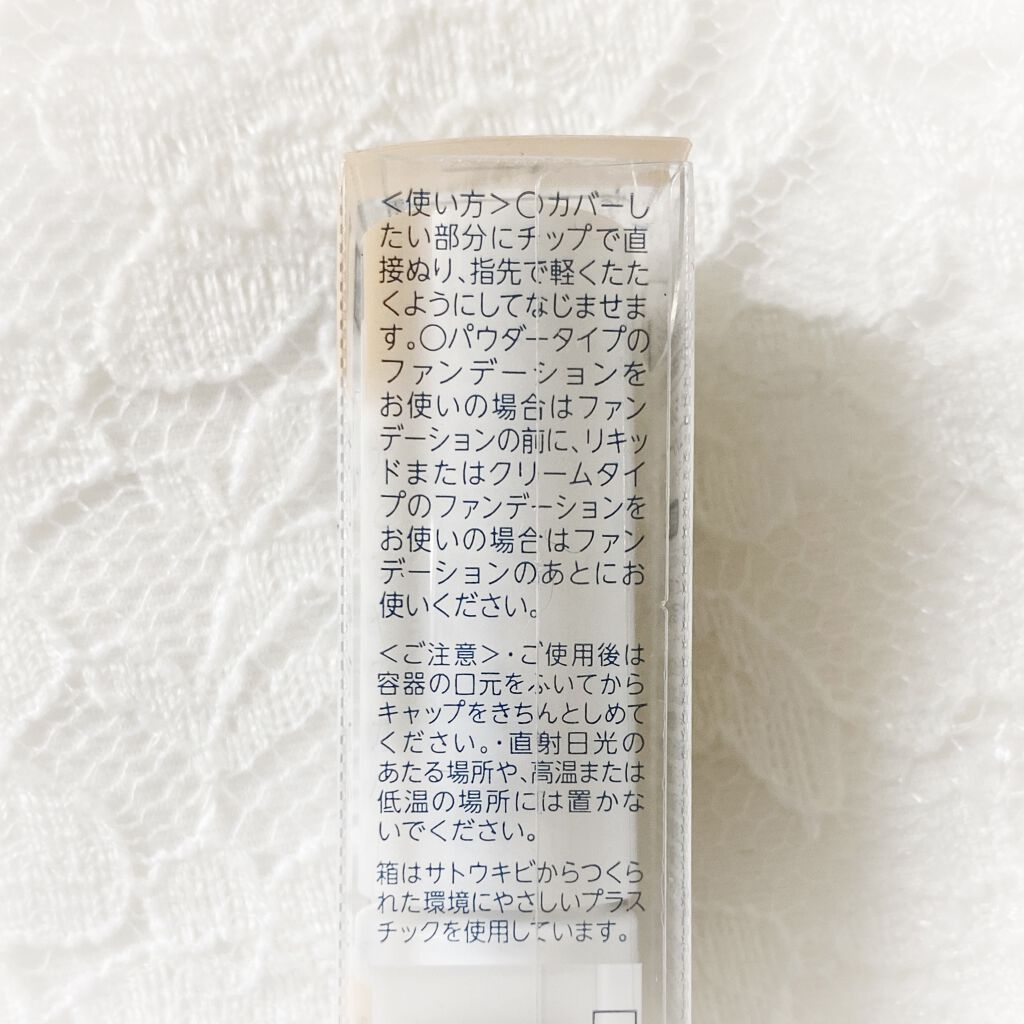 ＜使い方＞○カバーし
たい部分にチップで直
接ぬり、指先で軽くたた
くようにしてなじませま
す。○パウダータイプの
ファンデーションを
お使いの場合はファン
デーションの前に、リキッ
ドまたはクリームタイ
プのファンデーションを
お使いの場合はファン
デーションのあとにお
使いください。
＜ご注意＞・ご使用後は
容器の口元をふいてから
キャップをきちんとしめて
ください。・直射日光の
あたる場所や、高温または
低温の場所には置かな
いでください。
箱はサトウキビからつくら
れた環境にやさしいプラス
チックを使用しています。